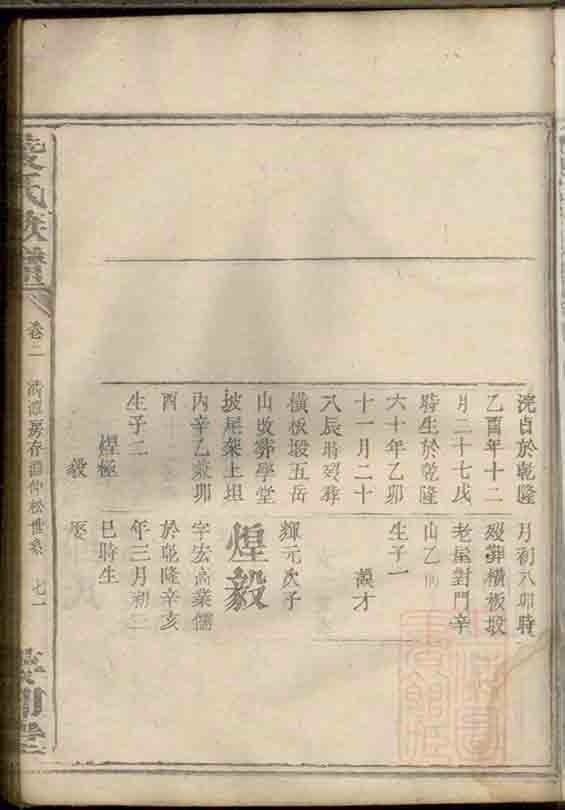 浣貞於乾隆
乙酉年十二
月二十七戌
時生於乾隆
六十年乙卯
十一月二十
八辰時歿葬
橫板塅五岳
山改葬學堂
坡尾架上坦
丙辛乙兼卯
酉
生子二
煌極
毅
月初八卯時
歿葬橫板塅
老屋對門辛
山乙向
生子一
萬才
輝元次子
煌毅
字宏高業儒
於乾隆辛亥
年三月初二
巳時生
歿
氏族譜
卷二
房存
仲松世系
七一